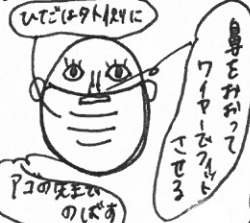 ひだは外側に
鼻をおおって
ワイヤーでフィット
させる
アゴの先まで
のばす